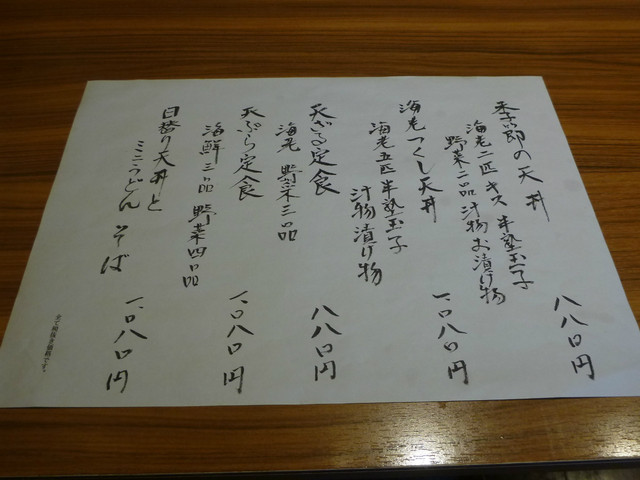 季節の天丼
海老二匹 キス 半塾玉子
野菜二品 汁物 お漬け物
八八〇円
海老つくし天丼
海老五匹 半塾玉子
汁物 漬け物
一〇八〇円
天ざる定食
海老 野菜三品
八八〇円
天ぷら定食
海鮮三品 野菜四品
一〇八〇円
日替り天丼と
ミニうどん そば
一〇八〇円
全て税抜き価格です。